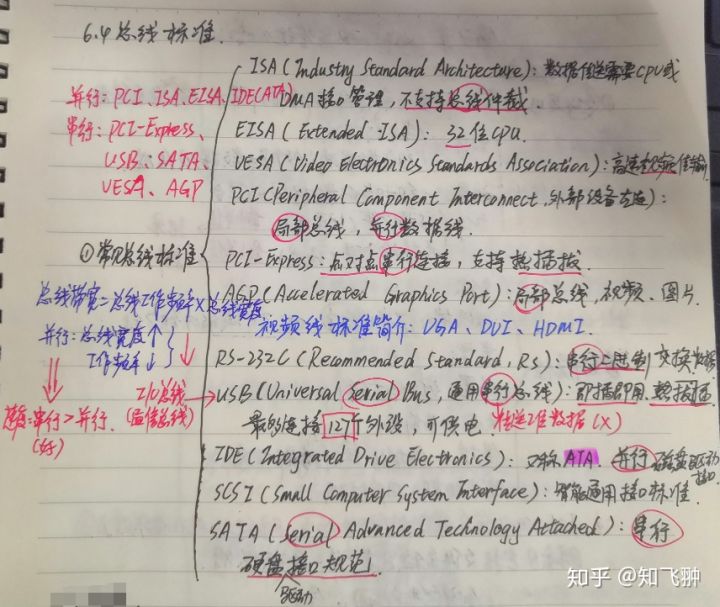 6.4 总线标准.
ISA (Industry Standard Architecture): 数据传送需要CPU或
DMA接口管理, 不支持总线仲裁
EISA (Extended ISA): 32位CPU.
VESA (Video Electronics Standards Association): 高速视频传输
PCI (Peripheral Component Interconnect, 外部设备互连):
局部总线, 并行数据线.
PCI-Express: 点对点串行连接, 支持热插拔.
AGP (Accelerated Graphics Port): 局部总线, 视频、图片.
视频线标准简介: VGA、DVI、HDMI.
RS-232C (Recommended Standard, RS): 串行二进制交换数据
USB (Universal Serial Bus, 通用串行总线): 即插即用, 热拔插
最多连接127个外设, 可供电. 传送2进数据(X)
IDE (Integrated Drive Electronics): 又称ATA. 并行 磁盘驱动接口
SCSI (Small Computer System Interface): 智能通用接口标准.
SATA (Serial Advanced Technology Attached): 串行
硬盘接口规范.
驱动
并行: PCI、ISA、EISA、IDE(ATA)
串行: PCI-Express、
USB、SATA、
VESA、AGP
①常见总线标准
总线带宽=总线工作频率×总线宽度
并行: 总线宽度↑
工作频率↓
速度: 串行>并行.
(好)
I/O总线
(通信总线)
知乎 @知飞翀